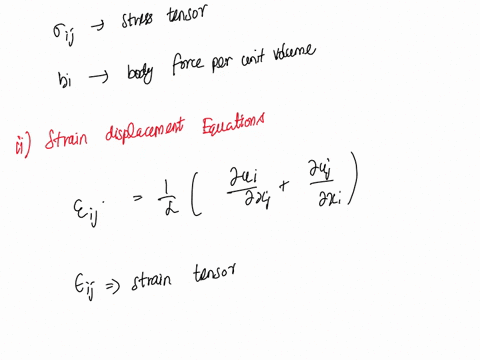 σij → stress tensor
bi → body force per unit volume
ii) Strain displacement Equations
εij = 1/2 ( ∂ui/∂xj + ∂uj/∂xi )
εij ⇒ strain tensor